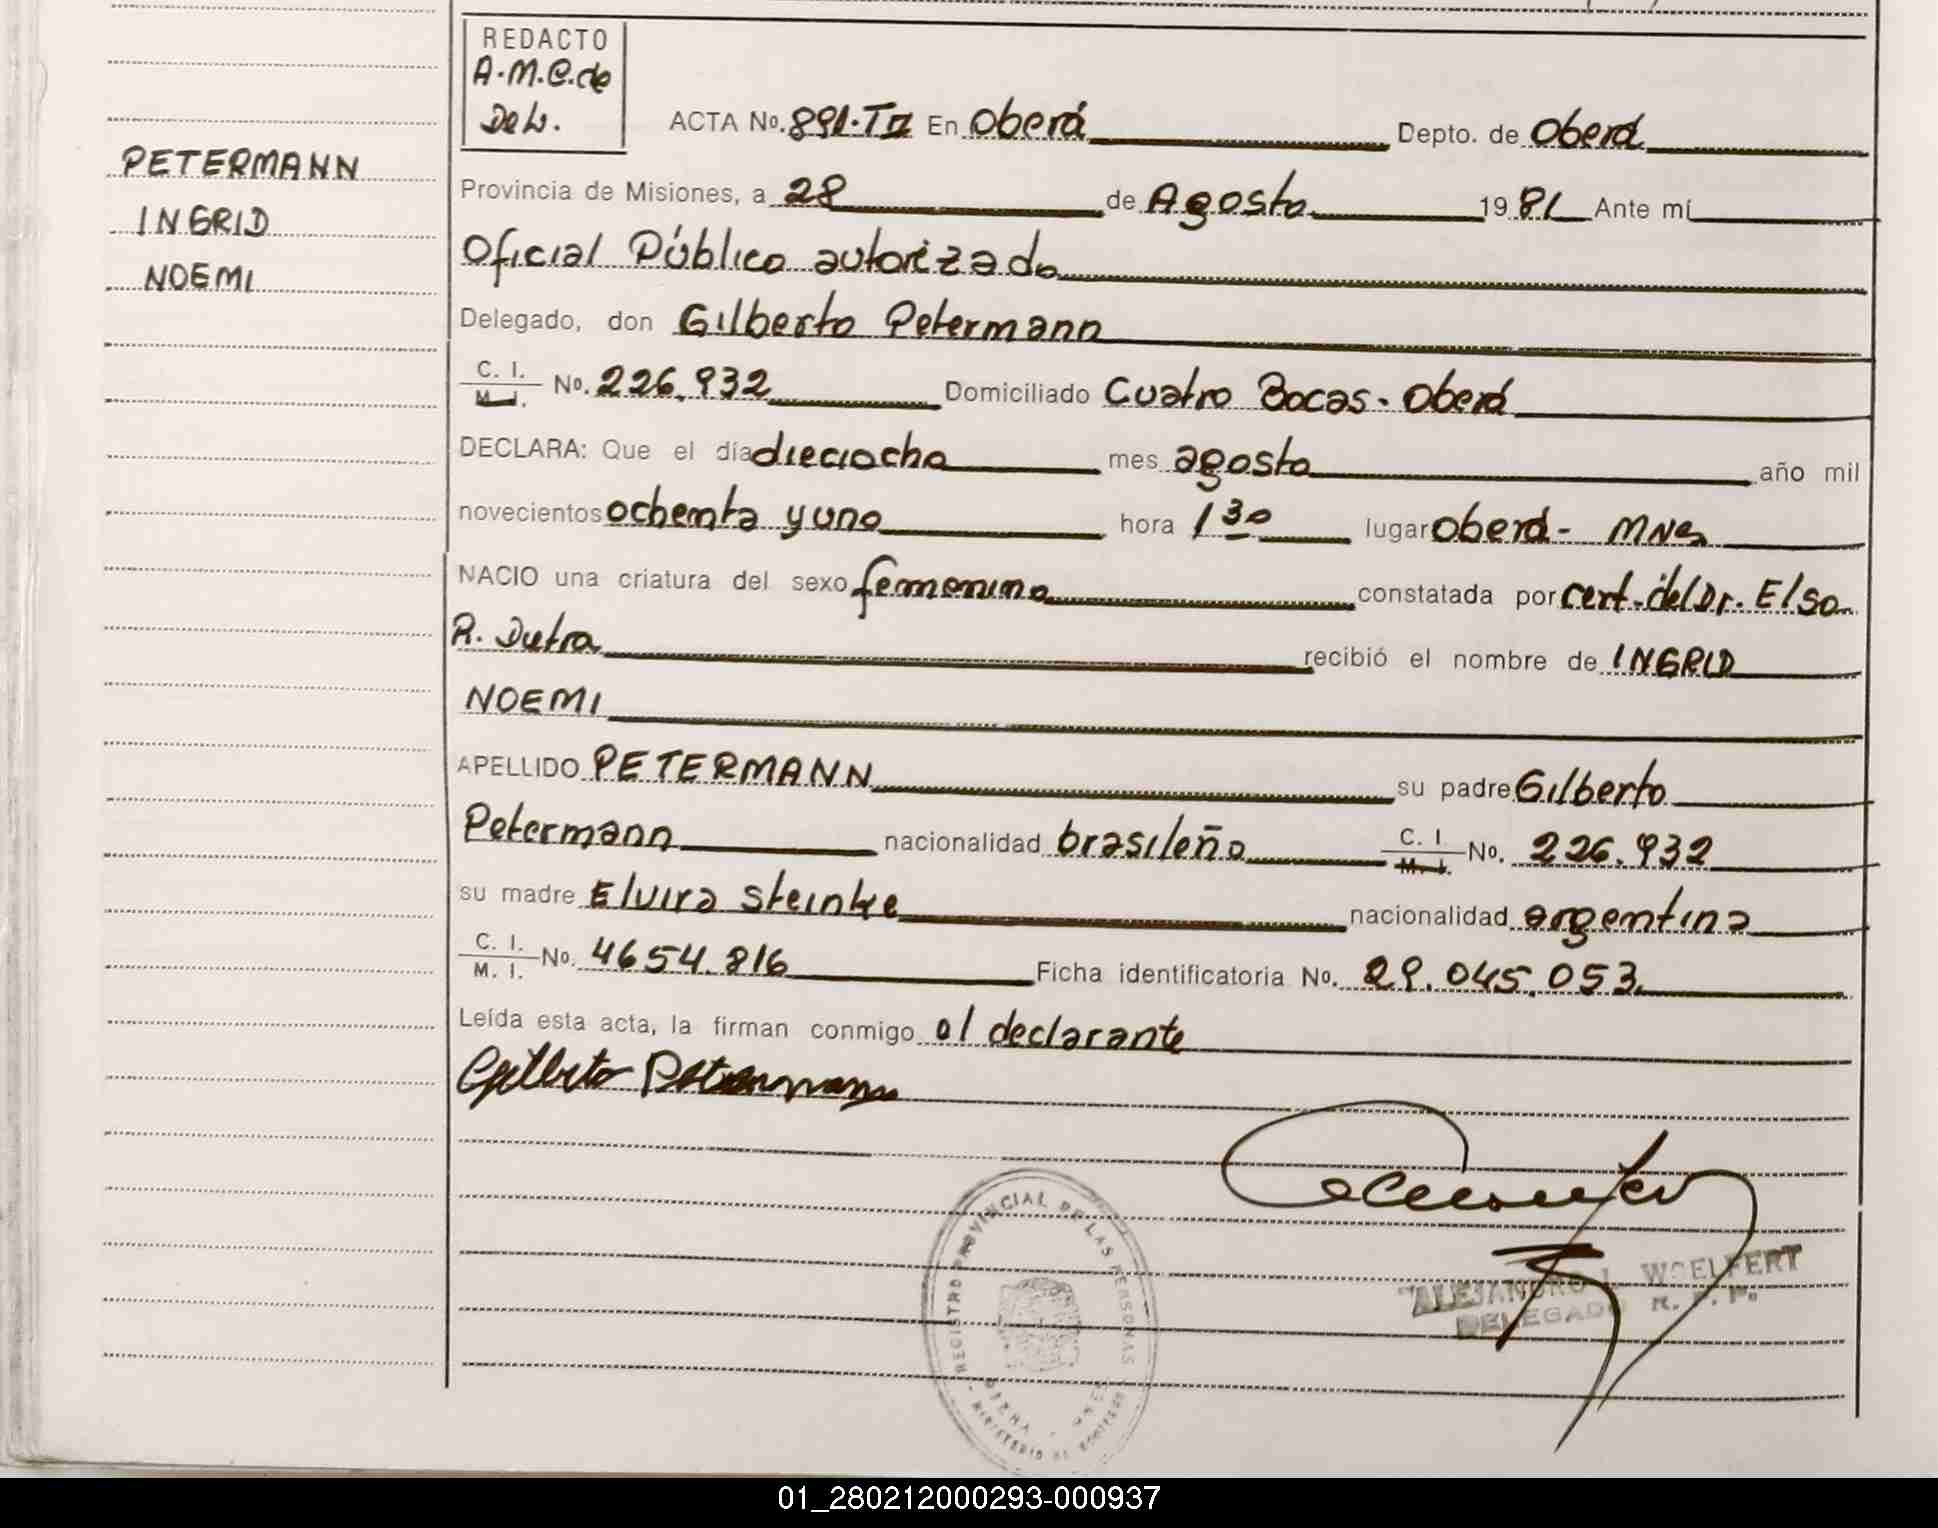 REDACTO
A.M.C. de
DeW.
ACTA No. 891.TII En Oberá Depto. de Oberá
PETERMANN
INGRID
NOEMI
Provincia de Misiones, a 28 de Agosto 1981 Ante mí
Oficial Público autorizado
Delegado, don Gilberto Petermann
C. I. M. I. No. 226.932 Domiciliado Cuatro Bocas - Oberá
DECLARA: Que el día dieciocho mes agosto año mil
novecientos ochenta y uno hora 1 30 lugar Oberá - Mnes
NACIO una criatura del sexo femenino constatada por cert. del Dr. Elsa
R. Dutra recibió el nombre de INGRID
NOEMI
APELLIDO PETERMANN su padre Gilberto
Petermann nacionalidad brasileño C. I. M. I. No. 226.932
su madre Elvira Steinke nacionalidad argentina
C. I. M. I. No. 4654.816 Ficha identificatoria No. 29.045.053.
Leída esta acta, la firman conmigo el declarante
Gilberto Petermann
REGISTRO PROVINCIAL DE LAS PERSONAS
MINISTERIO DE GOBIERNO
ALEJANDRO L. WOELFERT
DELEGADO R. P. P.
01_280212000293-000937